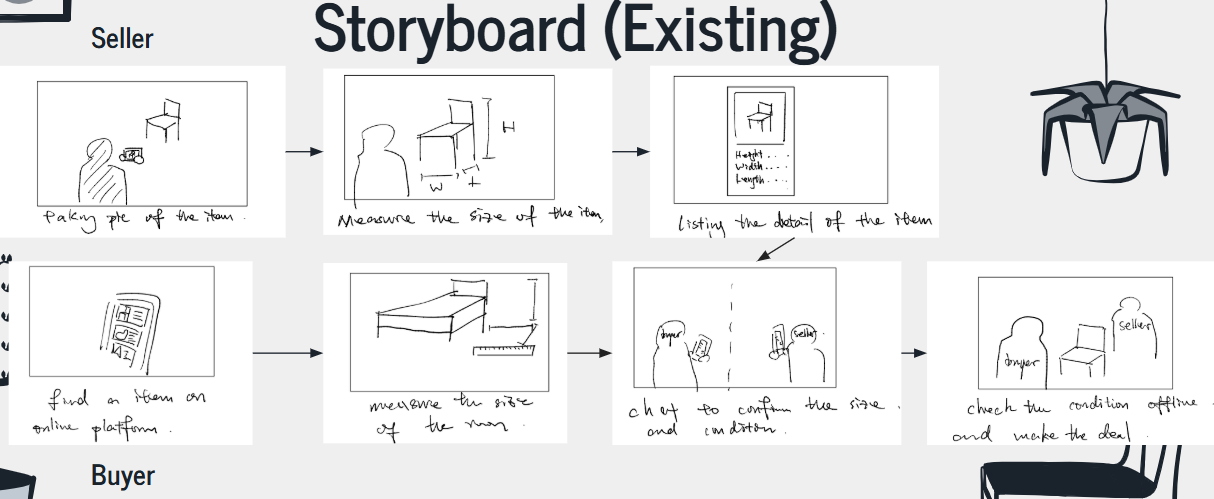 Storyboard (Existing)
Seller
Taking pic of the item.
H
W
L
Measure the size of the item,
Height....
Width....
Length....
Listing the detail of the item
find an item on
online platform.
measure the size
of the room.
buyer
seller
chat to confirm the size.
and condition.
buyer
seller
check the condition offline.
and make the deal.
Buyer